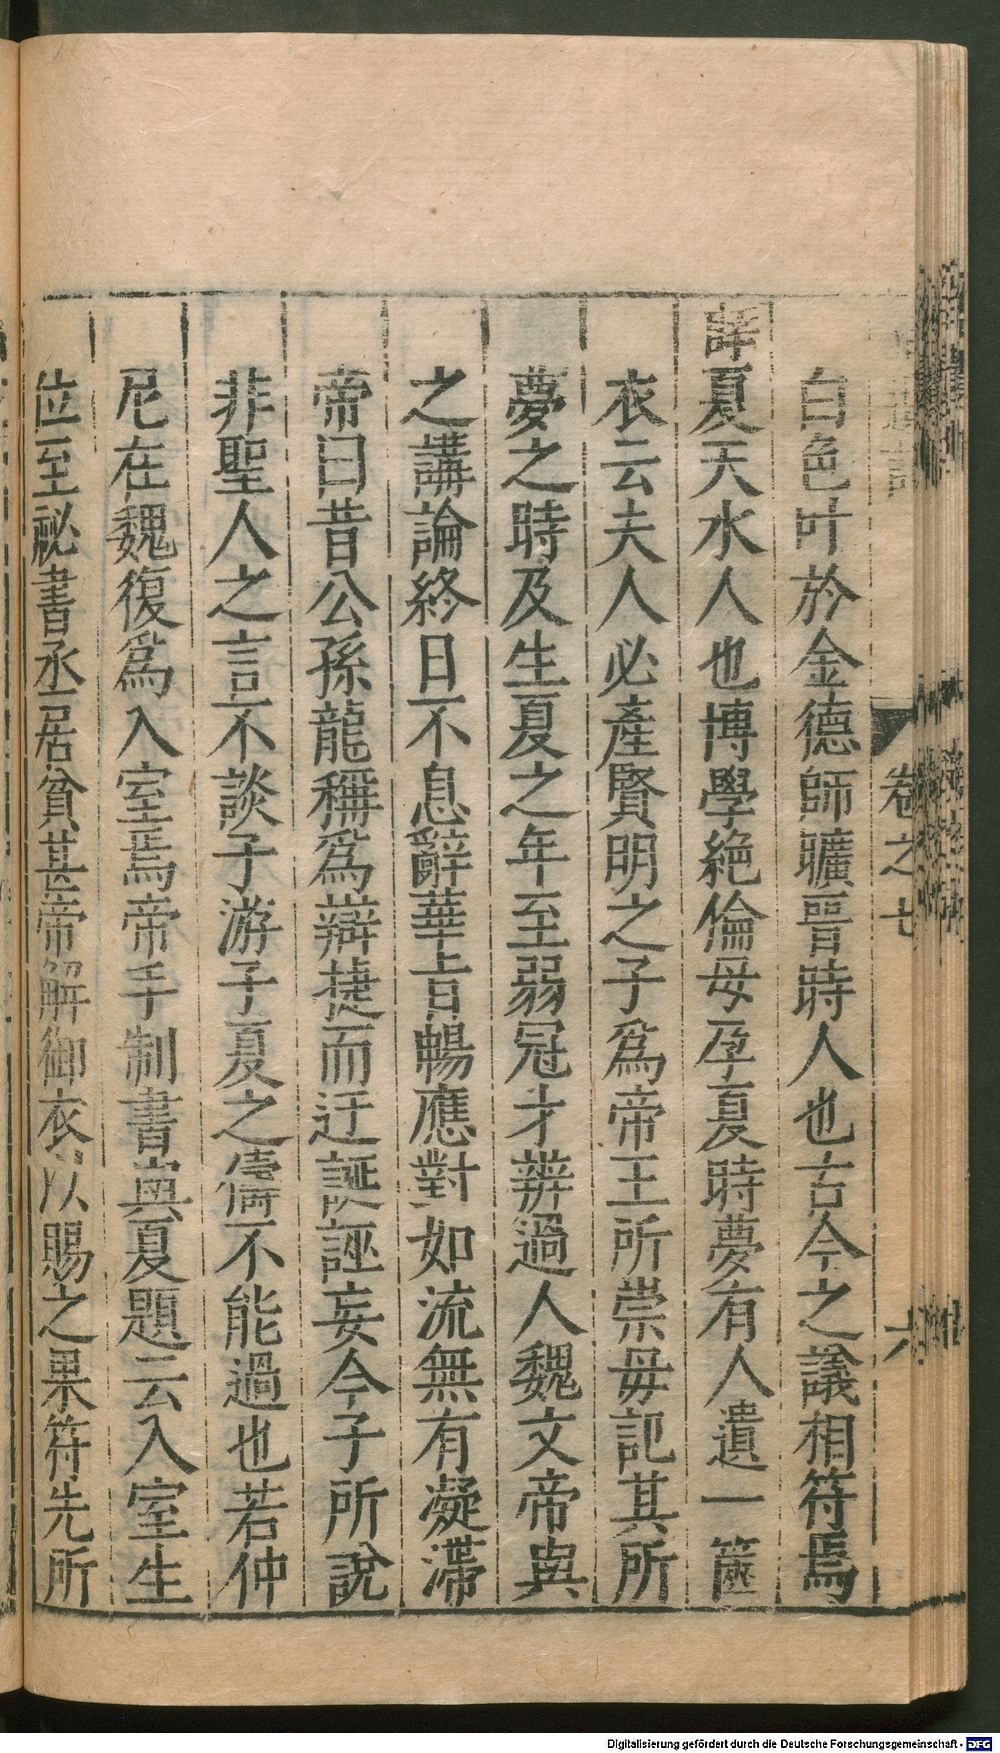 卷之七
六
白色叶於金德師曠晉時人也古今之議相符焉
薛夏天水人也博學絶倫母孕夏時夢有人遺一篋
衣云夫人必產賢明之子爲帝王所崇毋記其所
夢之時及生夏之年至弱冠才辨過人魏文帝與
之講論終日不息辭華旨暢應對如流無有凝滯
帝曰昔公孫龍稱爲辯捷而迂誕誣妄今子所說
非聖人之言不談子游子夏之儔不能過也若仲
尼在魏復爲入室焉帝手制書與夏題云入室生
位至祕書丞居貧甚帝解御衣以賜之果符先所
Digitalisierung gefördert durch die Deutsche Forschungsgemeinschaft - DFG